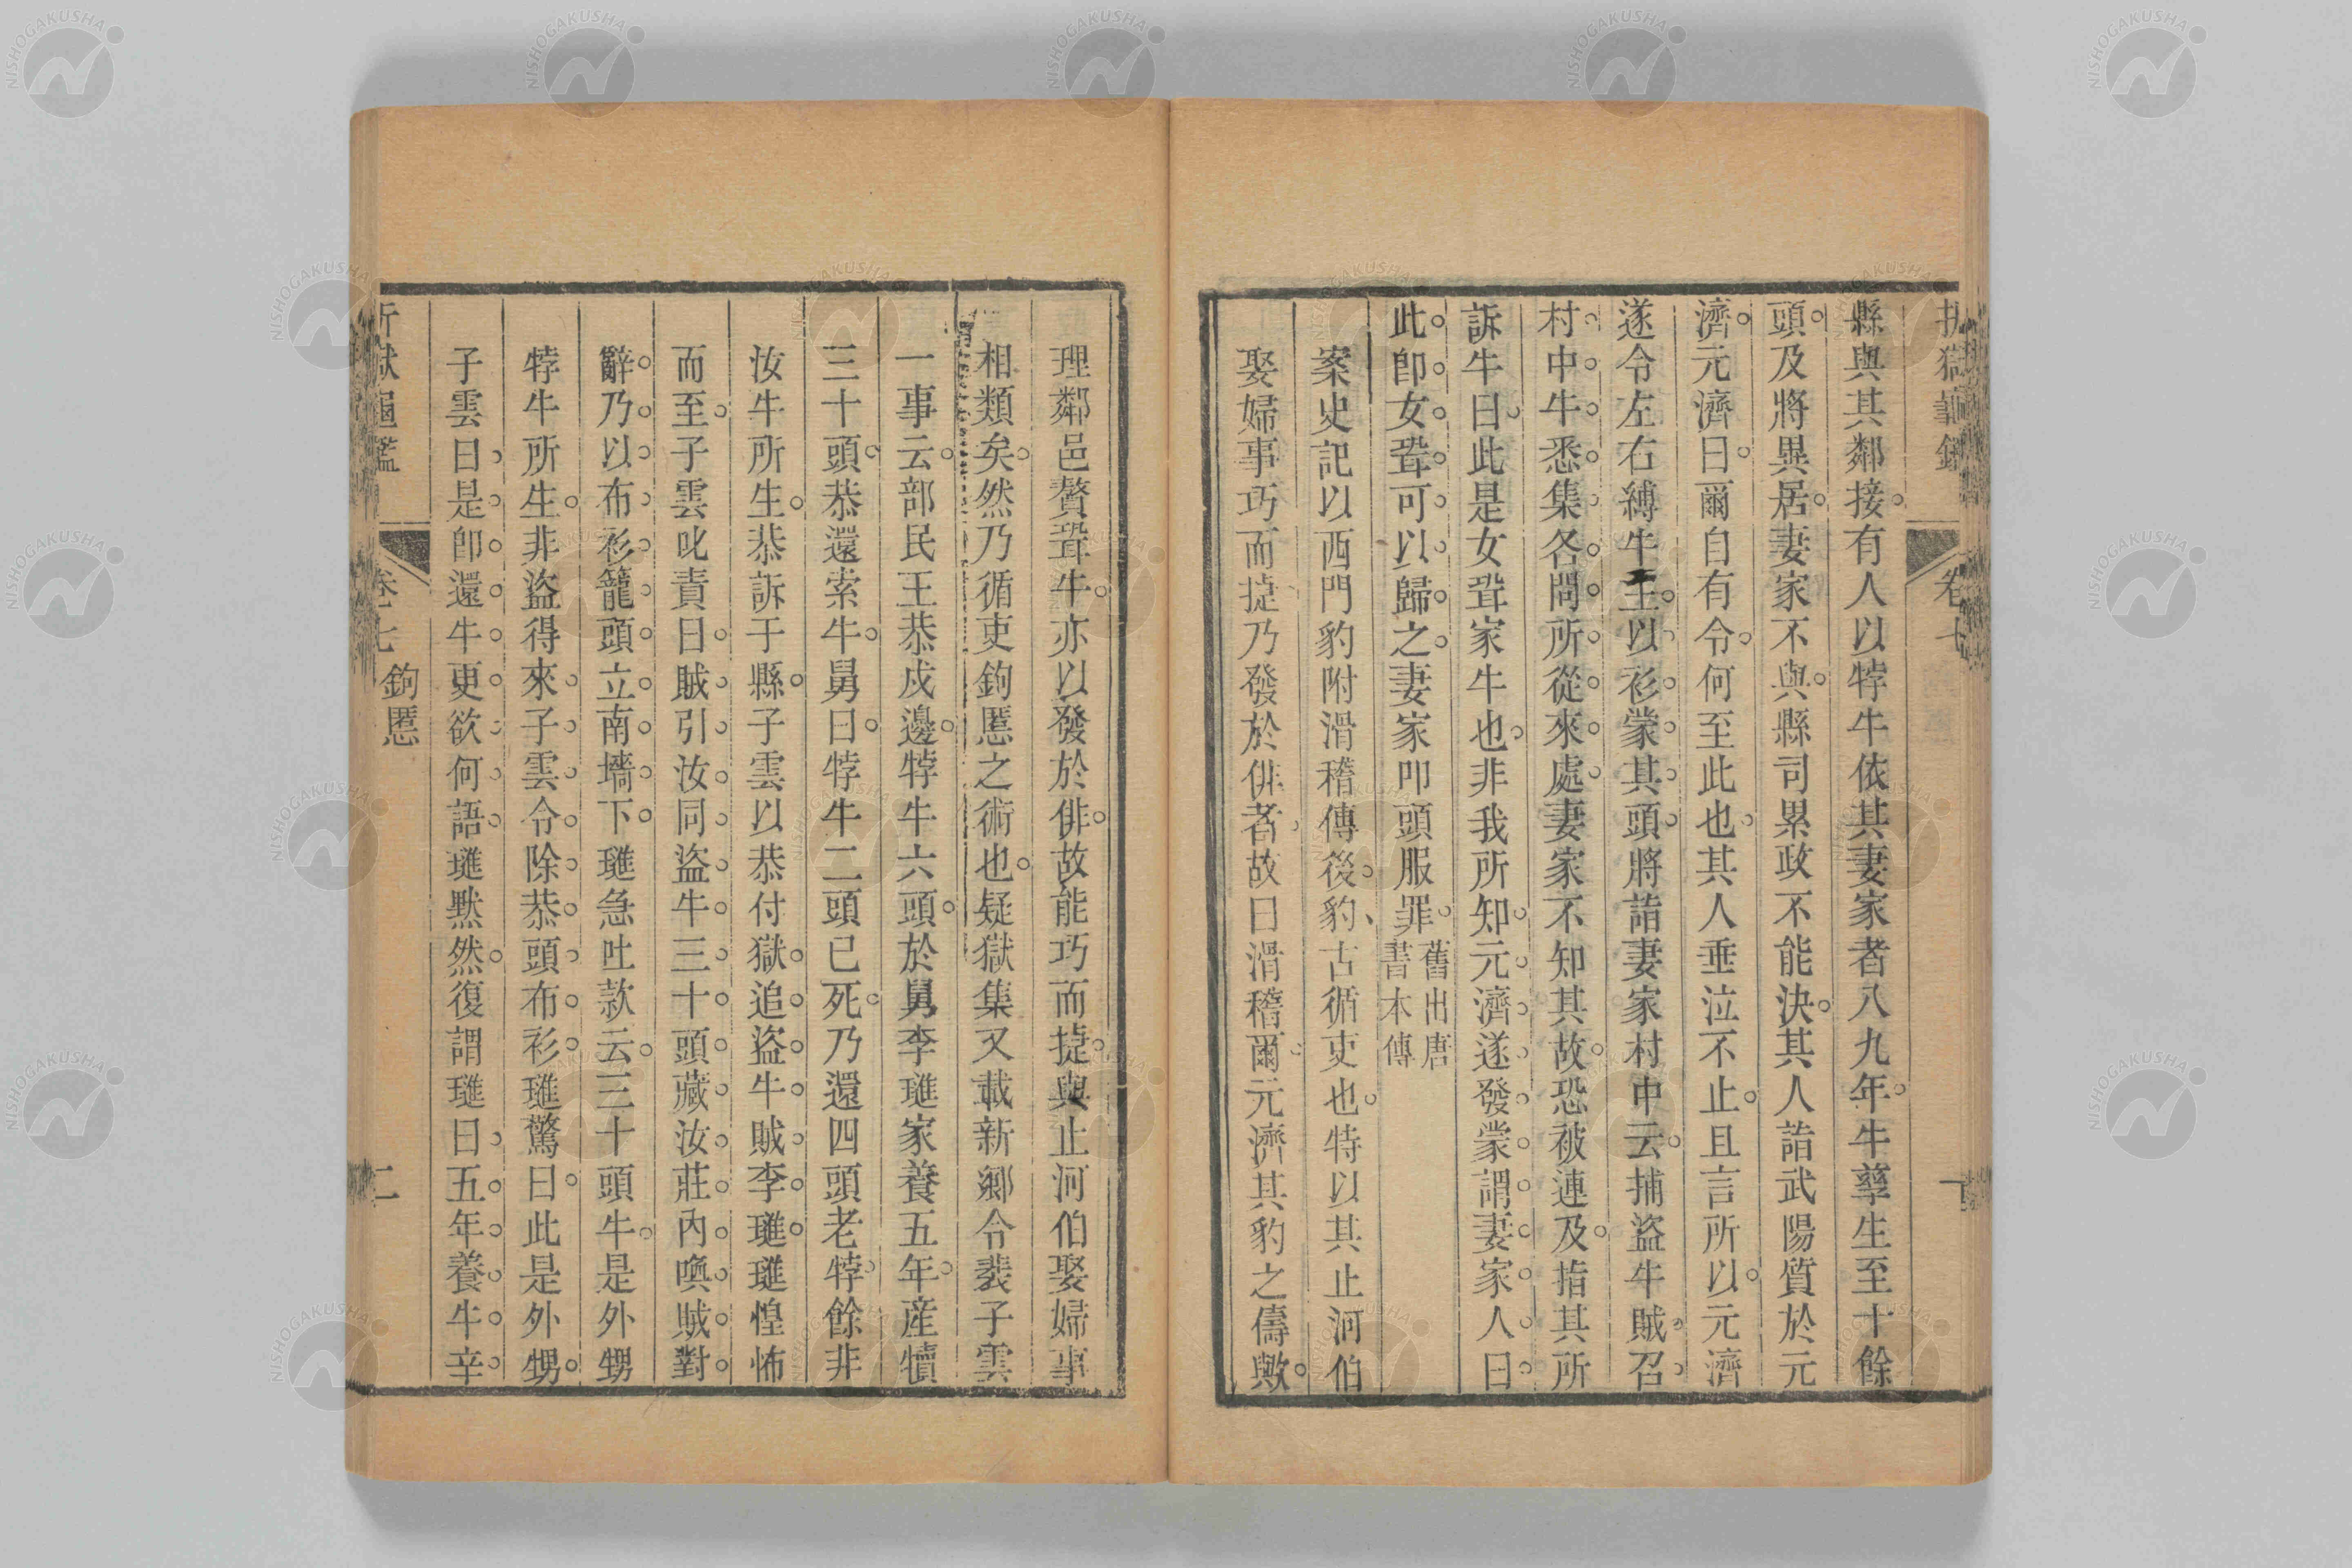 縣與其鄰接有人以牸牛依其妻家者八九年牛孳生至十餘
頭及將異居妻家不與縣司累政不能決其人詣武陽質於元
濟元濟曰爾自有令何至此也其人垂泣不止且言所以元濟
遂令左右縛牛主以衫蒙其頭將詣妻家村中云捕盜牛賊召
村中牛悉集各問所從來處妻家不知其故恐被連及指其所
訴牛曰此是女壻家牛也非我所知元濟遂發蒙謂妻家人曰
此卽女壻可以歸之妻家叩頭服罪舊出唐書本傳
案史記以西門豹附滑稽傳後豹古循吏也特以其止河伯
娶婦事巧而捷乃發於俳者故曰滑稽爾元濟其豹之儔歟
理鄰邑贅壻牛亦以發於俳故能巧而捷與止河伯娶婦事
相類矣然乃循吏鉤慝之術也疑獄集又載新鄉令裴子雲
一事云部民王恭戍邊牸牛六頭於舅李璡家養五年產犢
三十頭恭還索牛舅曰牸牛二頭已死乃還四頭老牸餘非
汝牛所生恭訴于縣子雲以恭付獄追盜牛賊李璡璡惶怖
而至子雲叱責曰賊引汝同盜牛三十頭藏汝莊內喚賊對
辭乃以布衫籠頭立南墻下璡急吐款云三十頭牛是外甥
牸牛所生非盜得來子雲令除恭頭布衫璡驚曰此是外甥
子雲曰是卽還牛更欲何語璡默然復謂璡曰五年養牛辛
折獄龜鑑 卷七 鉤慝 二